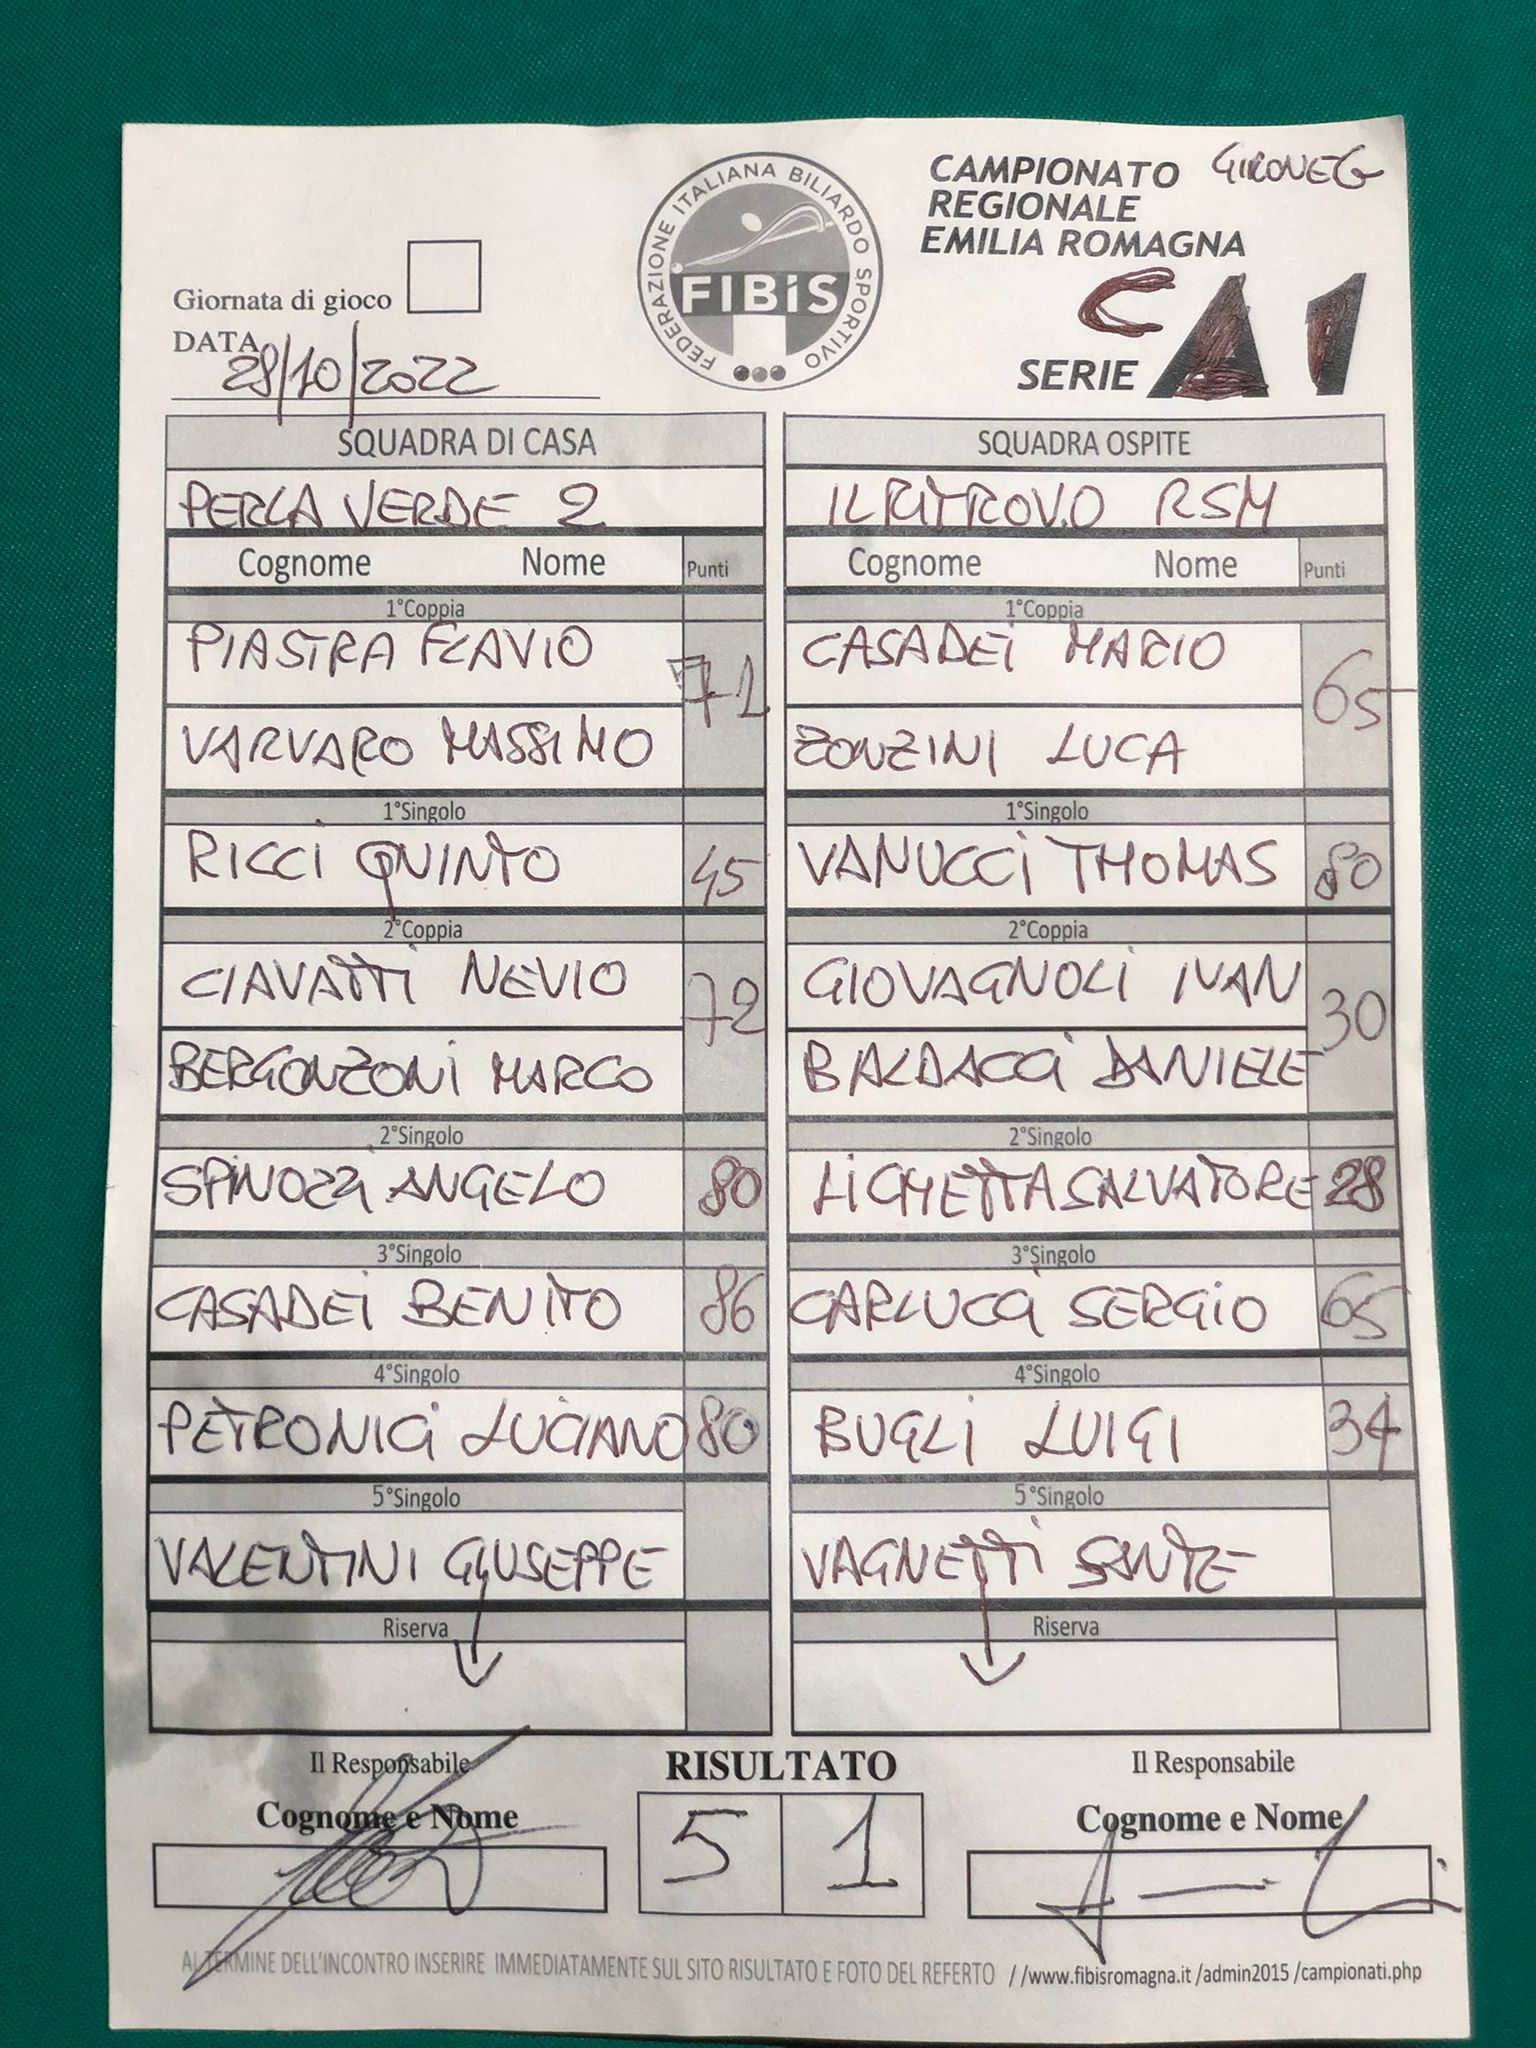 FEDERAZIONE ITALIANA BILIARDO SPORTIVO
FIBiS
CAMPIONATO GIRONE G
REGIONALE
EMILIA ROMAGNA
C
SERIE A1
Giornata di gioco
DATA 28/10/2022
SQUADRA DI CASA SQUADRA OSPITE
PERLA VERDE 2 IL RITROVO RSM
Cognome Nome Punti Cognome Nome Punti
1°Coppia 1°Coppia
PIASTRA FLAVIO 71 CASADEI MARIO 65
VARVARO MASSIMO ZONZINI LUCA
1°Singolo 1°Singolo
RICCI QUINTO 45 VANUCCI THOMAS 80
2°Coppia 2°Coppia
CIAVATTI NEVIO 72 GIOVAGNOLI IVAN 30
BERGONZONI MARCO BALDACCI DANIELE
2°Singolo 2°Singolo
SPINOZZI ANGELO 80 LICHETTA SALVATORE 28
3°Singolo 3°Singolo
CASADEI BENITO 86 CARLUCCI SERGIO 65
4°Singolo 4°Singolo
PETRONICI LUCIANO 80 BUGLI LUIGI 34
5°Singolo 5°Singolo
VALENTINI GIUSEPPE VAGNETTI SANTE
Riserva Riserva
Il Responsabile RISULTATO Il Responsabile
Cognome e Nome 5 1 Cognome e Nome
AL TERMINE DELL'INCONTRO INSERIRE IMMEDIATAMENTE SUL SITO RISULTATO E FOTO DEL REFERTO //www.fibisromagna.it /admin2015 /campionati.php